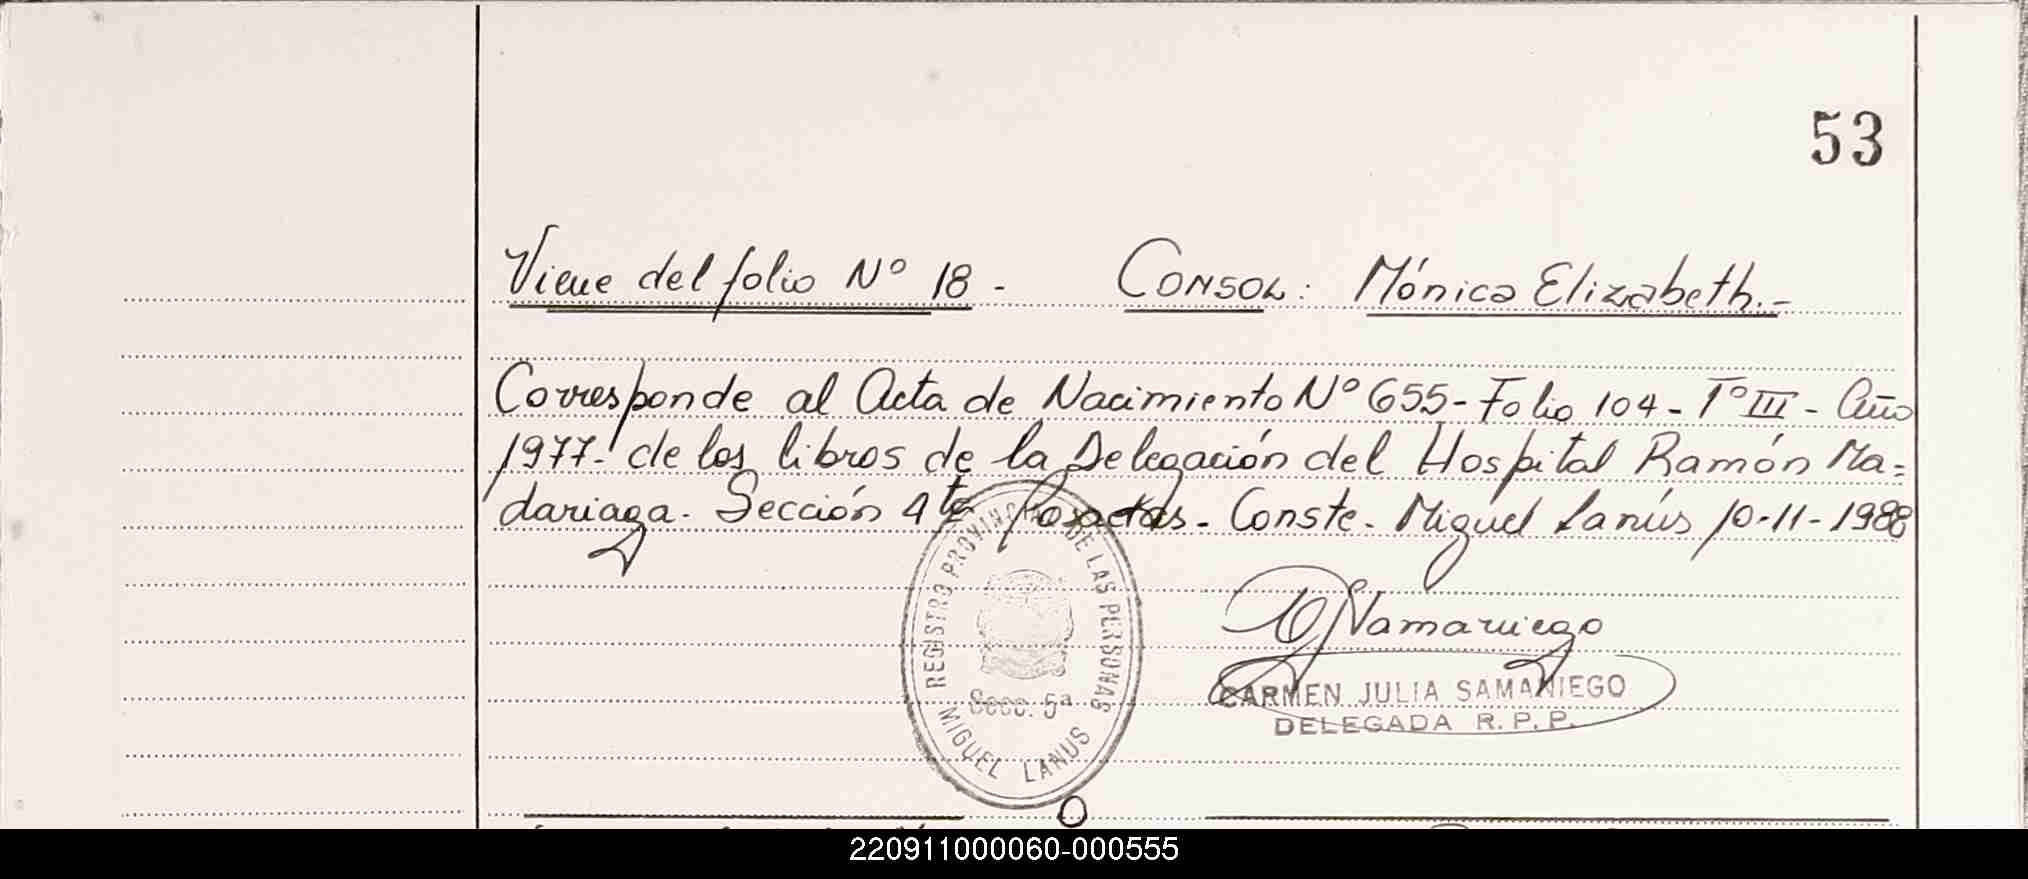 53
Viene del folio Nº 18 - CONSOL: Mónica Elizabeth.-
Corresponde al Acta de Nacimiento Nº 655 - Folio 104 - Tº III - Año
1977 - de los libros de la Delegación del Hospital Ramón Ma=
dariaga. Sección 4ta Posadas. Conste. Miguel Lanús 10-11-1988
REGISTRO PROVINCIAL DE LAS PERSONAS
Secc. 5ª
MIGUEL LANUS
CARMEN JULIA SAMANIEGO
DELEGADA R.P.P.
220911000060-000555